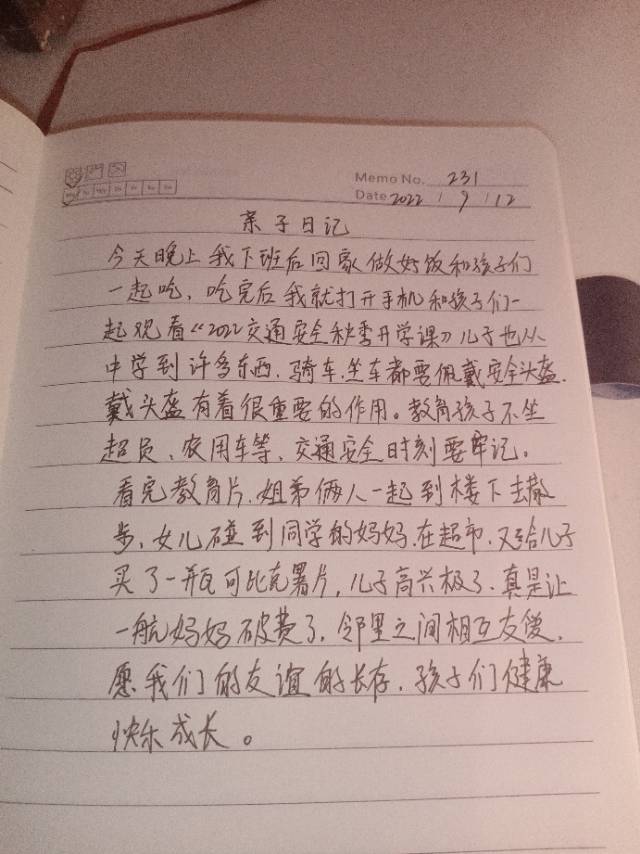 Memo No. 231
Date 2022 / 9 / 12
亲子日记
今天晚上我下班后回家做好饭和孩子们
一起吃，吃完后我就打开手机和孩子们一
起观看《2022交通安全秋季开学课》儿子也从
中学到许多东西，骑车、坐车都要佩戴安全头盔，
戴头盔有着很重要的作用。教育孩子不坐
超员、农用车等，交通安全时刻要牢记。
看完教育片，姐弟俩人一起到楼下去散
步，女儿碰到同学的妈妈，在超市，又给儿子
买了一瓶可比克薯片，儿子高兴极了，真是让
一航妈妈破费了，邻里之间相互友爱，
愿我们的友谊的长存，孩子们健康
快乐成长。